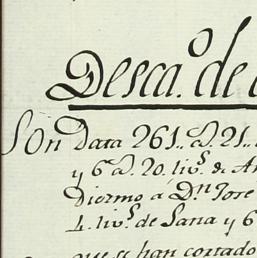 Desca.º de
Son Data 261.. @. 21..
y 6 @. 20. liv.s de
Diezmo á D.n Jose
4. liv.s de Lana y 6
que se han cortado